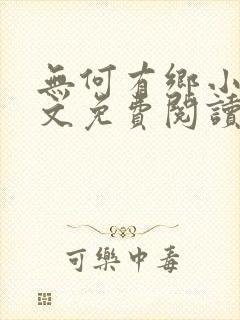 無何有鄉小
文免費閱讀
可樂中毒